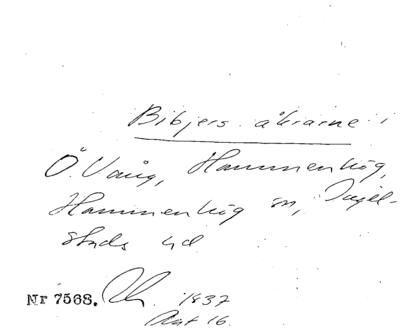 Bibjers åkrarne i
Ö. Vång, Hammenhög,
Hammenhög sn, Ingel-
stads hd
Nr 7568. 1837
Akt 16.